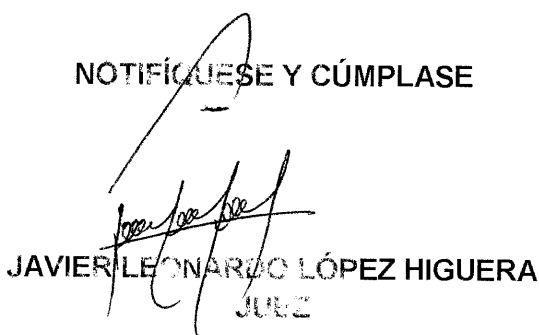 NOTIFÍQUESE Y CÚMPLASE
JAVIER LEONARDO LÓPEZ HIGUERA
JUEZ